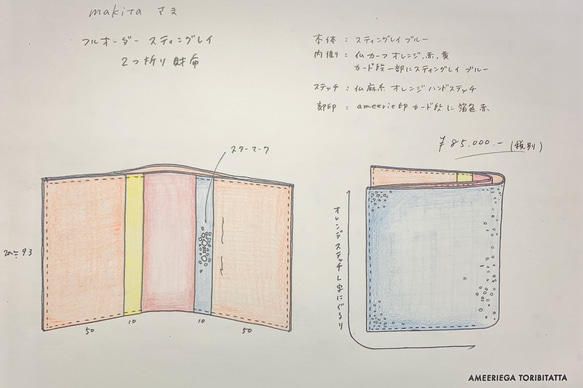 makita マミ
フルオーダー スティングレイ
2つ折り財布
本体 : スティングレイ ブルー
内張り : 仏カーフ オレンジ.赤.黄
カード段一部にスティングレイ ブルー
ステッチ : 仏麻糸 オレンジ ハンドステッチ
刻印 : ameerie印 カード段に箔色 赤
¥85.000.- (税別)
スターマーク
オレンジステッチL字にぐるり
93
50
10
10
50
AMEERIEGA TORIBITATTA